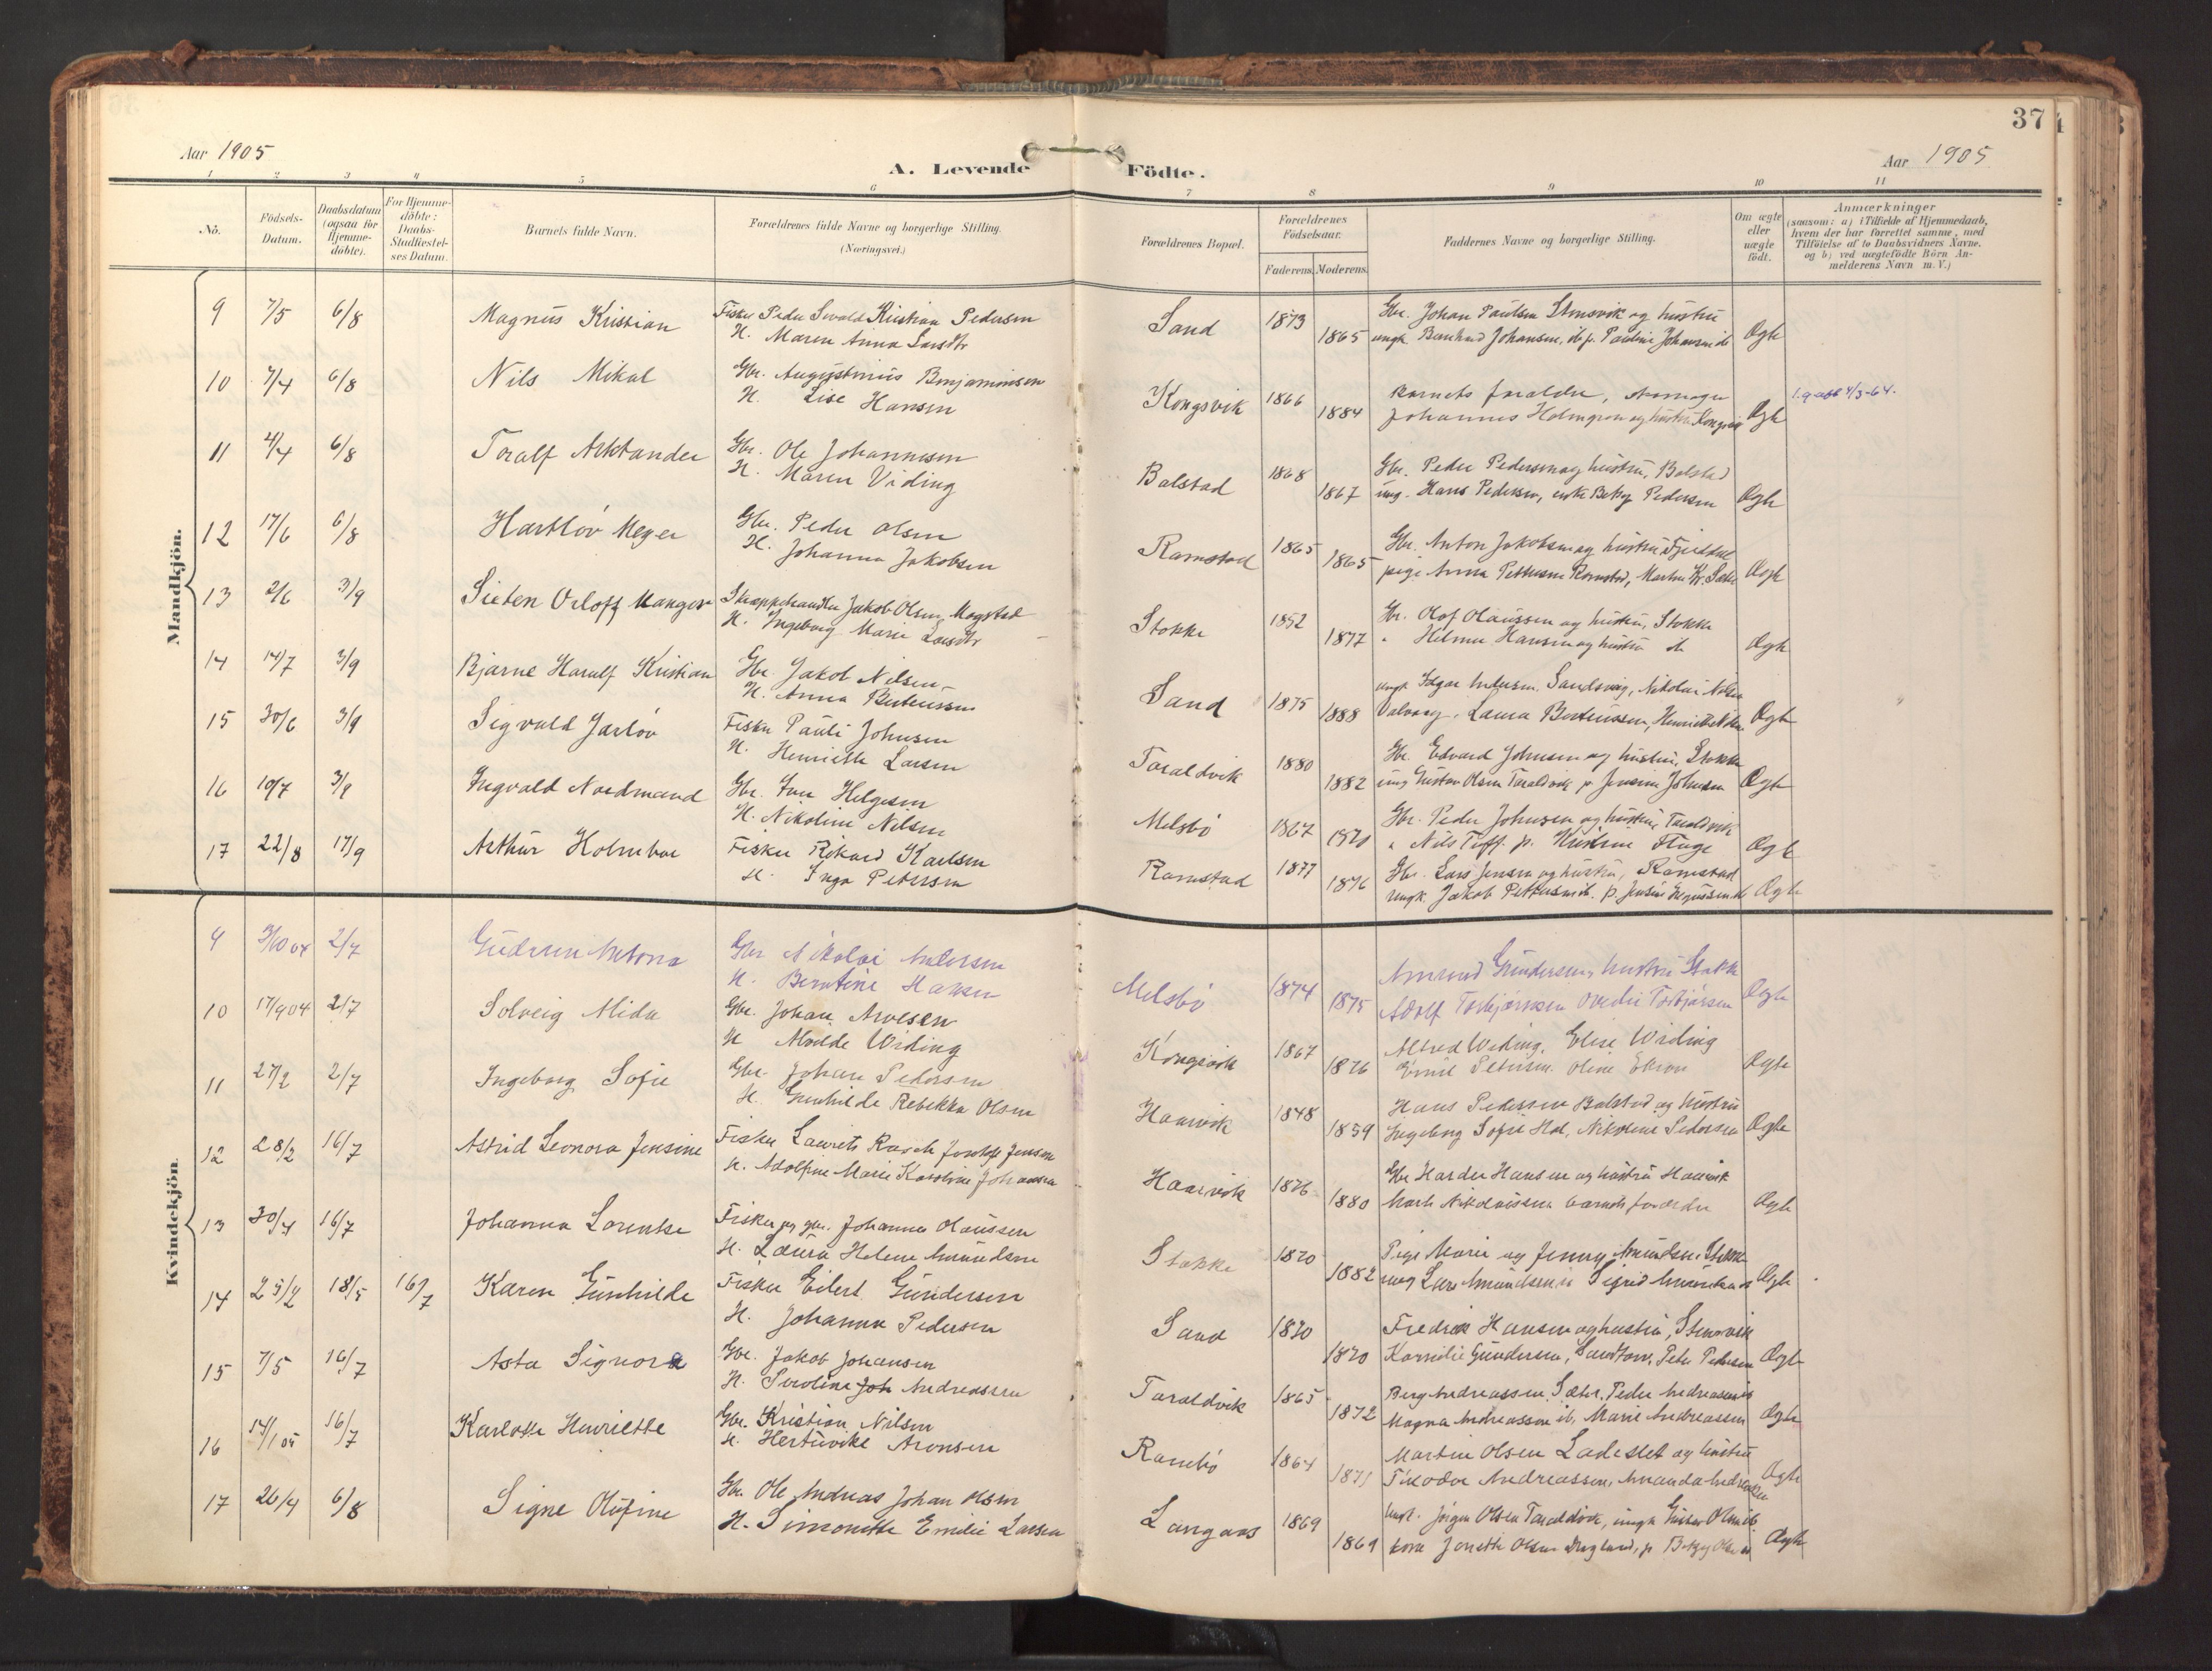 37
Aar 1905
A. Levende Födte.
Aar 1905
1 2 3 4 5 6 7 8 9 10 11
No.
Födsels-Datum.
Daabsdatum (ogsaa for Hjemme-döbte).
For Hjemme-döbte: Daabs-Stadfæstel-ses Datum.
Barnets fulde Navn.
Forældrenes fulde Navne og borgerlige Stilling. (Næringsvei.)
Forældrenes Bopæl.
Forældrenes Födselsaar.
Faderens. Moderens.
Faddernes Navne og borgerlige Stilling.
Om ægte eller uægte födt.
Anmærkninger
(saasom: a) i Tilfælde af Hjemmedaab, hvem der har forrettet samme, med Tilföielse af to Daabsvidners Navne, og b) ved uægtefödte Börn An-melderens Navn m. V.)
Mandkjön.
9 7/5 6/8 Magnus Kristian Fisker Peder Sevald Kristian Pedersen Sand 1873 Gbr. Johan Paulsen Stensvik og hustru
H. Maren Anna Larsdtr 1865 ungk. Bernhard Johansen, ib p. Pauline Johansen ib Ægte
10 7/4 6/8 Nils Mikal Gbr. Augustinius Benjaminsen Kongsvik 1866 Barnets forældre,
H. Lise Hansen 1884 Johannes Holmgren og hustru Kongsvik Ægte
11 4/4 6/8 Toralf Arktander Gbr. Ole Johannesen Balstad 1868 Gbr. Peder Pedersen og hustru, Balstad
H. Maren Viding 1867 ung. Hans Pedersen, enke Betzy Pedersen Ægte
12 17/6 6/8 Hartlöv Meyer Gbr. Peder Olsen Ramstad 1865 Gbr. Anton Jakobsen og hustru
H. Johanna Jakobsen 1865 pige Anna Pettersen Ramstad, Ægte
13 2/6 3/9 Sieten Orloff Mangor Skræppehandler Jakob Olsen Magstad Stokke 1852 Gbr. Olof Olaussen og hustru, Stokke
H. Ingeborg Marie Larsdtr 1877 " Helmer Hansen og hustru do Ægte
14 14/7 3/9 Bjarne Haralf Kristian Gbr. Jakob Nilsen Sand 1875 ungk. Edgar Andersen Sandsvæg, Nikolai Nilsen
H. Anna Berteussen 1888 Laura Berteussen, Ægte
15 30/6 3/9 Sigvald Jarlöv Fisker Pauli Johnsen Taraldvik 1880 Gbr. Edvard Johnsen og hustru, Stokke
H. Henriette Larsen 1882 ung Gustav Olsen Taraldvik p. Jensine Johnsen Ægte
16 10/7 3/9 Ingvald Nordmand Gbr. Iver Helgesen Melsbö 1867 Gbr. Peder Johnsen og hustru Taraldvik
H. Nikoline Nilsen 1870 " Nils Toff. p. Kristine Fluge Ægte
17 22/8 17/9 Arthur Holmboe Fisker Rikard Karlsen Ramstad 1877 Gbr. Lars Jensen og hustru, Ramstad
H. Inga Petersen 1876 ungk. Jakob Pettersen ib. p. Jensine Ægte
1/3-64.
Kvindekjön.
9 3/10 04 2/7 Gudrun Antona Gbr Nikolai Andersen Melsbö 1874 Amund Gundersen, hustru Stokke
H. Berntine Hansen 1875 Adolf Torbjørnsen Ovedie Torbjørsen Ægte
10 17/9 04 2/7 Solveig Alida Gbr. Johan Arvesen Kongsvik 1867 Alfred Widing, Elise Widing
H Alvilde Widing 1876 Emil Petersen. Oline Ekren Ægte
11 27/2 2/7 Ingeborg Sofie Gbr. Johan Pedersen Haarvik 1848 Hans Pedersen Balstad og hustru
H. Gunhilde Rebekka Olsen 1859 Ingeborg Sofie Hol, Nikoline Pedersen Ægte
12 28/2 16/7 Astrid Leonora Jensine Fisker Laurits Rasch Jentoft Jensen Haarvik 1876 Gbr Harder Hansen og hustru Haarvik
H. Adolfine Marie Karoline Johansen 1880 Mark Nikolaissen barnets forældre Ægte
13 30/4 16/7 Johanna Lorentse Fisker og gbr. Johannes Olaussen Stokke 1870 Pige Marie og Jenny Amundsen Stokke
H. Laura Helene Amundsen 1882 ung Lars Amundsen ib Sigrid Amundsen Ægte
14 25/2 18/5 16/7 Karen Gunhilde Fisker Eilert Gundersen Sand 1870 Fredrik Hansen og hustru, Stensvik
H. Johanna Pedersen 1870 Kornelie Gundersen, Sandtorv, Peter Pedersen Ægte
15 7/5 16/7 Asta Signora Gbr. Jakob Johansen Taraldvik 1865 Berg Andreassen Sæter, Peder Andreassen ib
H. Severine Joh Andreassen 1872 Magna Andreassen ib, Marie Andreassen Ægte
16 14/1 05 16/7 Karlotte Henriette Gbr. Kristian Nilsen Rambö 1864 Martin Olsen Ladeslet og hustru
H. Hertuvike Aronsen 1871 Teodor Andreassen, Amanda Andreassen Ægte
17 26/4 6/8 Signe Olufine Gbr. Ole Andreas Johan Olsen Langaas 1869 Ungk. Jörgen Olsen Taraldvik, ungk Gustav Olsen ib.
H. Simonette Emilie Larsen 1869 kone Jonette Olsen p Betzy Olsen Ægte